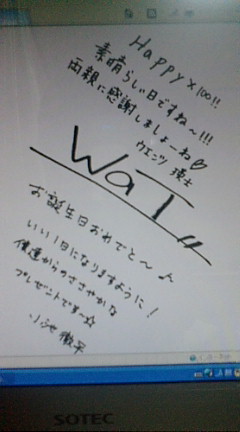 Happy×100!!
素晴らしい日ですね～!!!
両親に感謝しましょーね♡
ウエンツ瑛士
WaT
お誕生日おめでと～♪
いい1日になりますように!
僕達からのささやかな
プレゼントです～☆
小池徹平
SOTEC